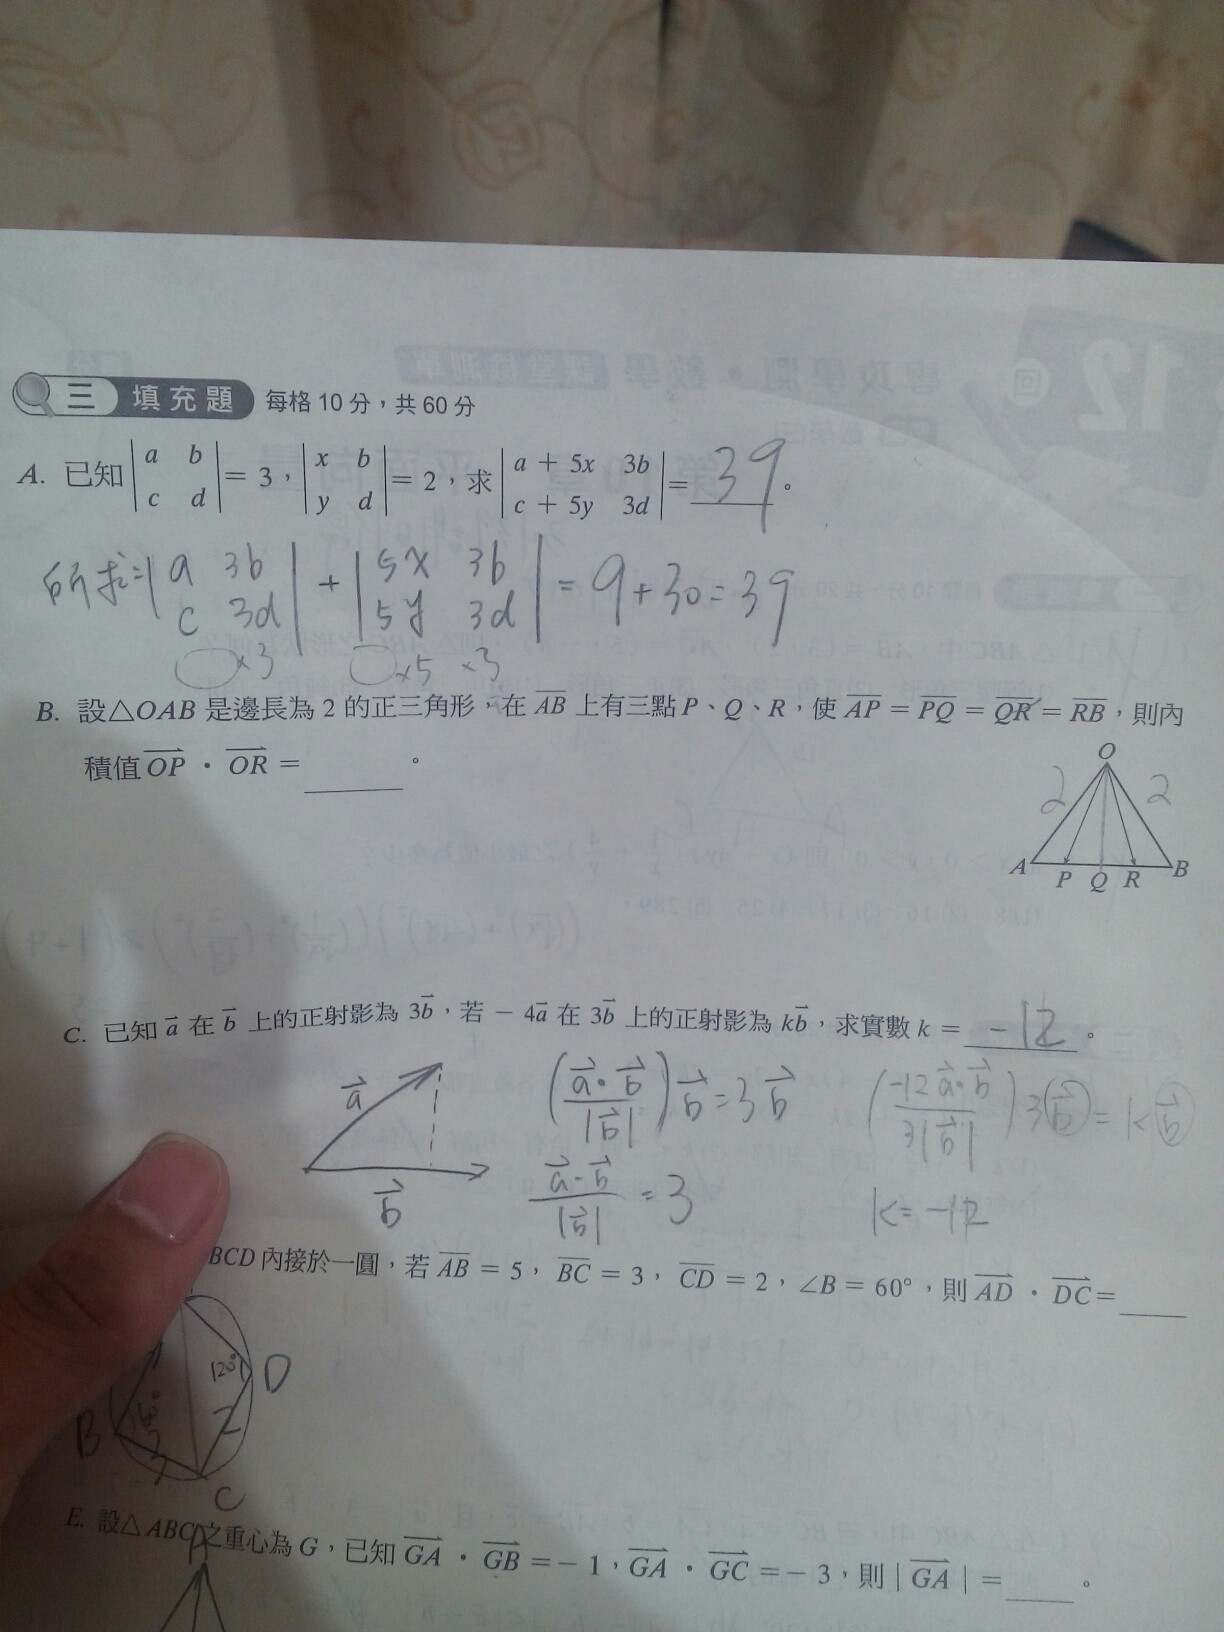 三 填充題 每格10分,共60分
A. 已知 |a b; c d| = 3,|x b; y d| = 2,求 |a + 5x 3b; c + 5y 3d| = 39。
所求=|a 3b; c 3d| + |5x 3b; 5y 3d| = 9+30=39
×3 ×5 ×3
B. 設△OAB 是邊長為 2 的正三角形,在 AB 上有三點 P、Q、R,使 AP = PQ = QR = RB,則內
積值 OP · OR = 。
O
2 2
A P Q R B
C. 已知 a 在 b 上的正射影為 3b,若 − 4a 在 3b 上的正射影為 kb,求實數 k = -12。
a
b
(a·b/|b|)b=3b
a·b/|b| = 3
(-12a·b/3|b|)3b=kb
k=-12
BCD 內接於一圓,若 AB = 5,BC = 3,CD = 2,∠B = 60°,則 AD · DC=
120° D
B 60° 2
3
C
E. 設△ABC之重心為 G,已知 GA · GB = − 1,GA · GC = − 3,則 | GA | = 。
A